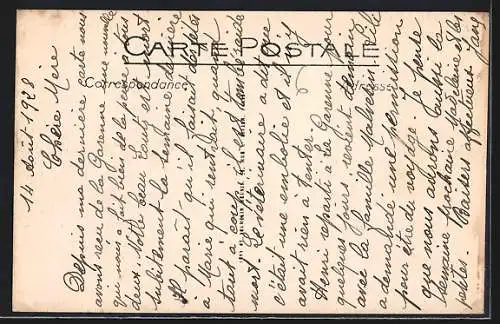 CARTE POSTALE
Correspondance
Adresse
14 Août 1928
Chère Mère
Depuis ma dernière carte nous
avons reçu de la Garenne une nouvelle
qui nous a fait bien de la peine à tous
deux. Notre beau est mort
subitement la semaine dernière
Il paraît qu'il faisait des fêtes
à Marie qui rentrait, quand
tout à coup il est tombé raide
mort. Le vétérinaire a dit que
c'était une embolie et qu'il n'y
avait rien à tenter.
Henri reparti à la Garenne pour
quelques jours revient demain
avec la famille Malvesin. Il
a demandé une permission
pour être du voyage. Je pense
que nous aurons aussi la
semaine prochaine Madeleine et les
petites. Baisers affectueux